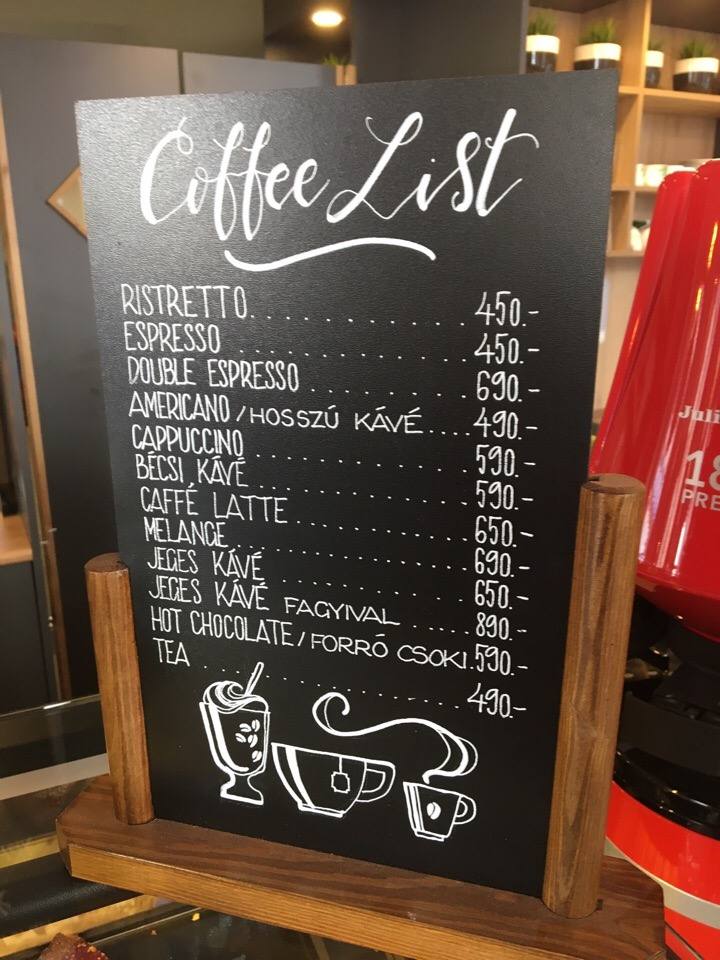 Coffee List
RISTRETTO............450.-
ESPRESSO............450.-
DOUBLE ESPRESSO........690.-
AMERICANO/HOSSZÚ KÁVÉ....490.-
CAPPUCCINO............590.-
BÉCSI KÁVÉ............590.-
CAFFÉ LATTE............650.-
MELANGE............690.-
JEGES KÁVÉ............650.-
JEGES KÁVÉ FAGYIVAL......890.-
HOT CHOCOLATE/FORRÓ CSOKI.590.-
TEA............490.-